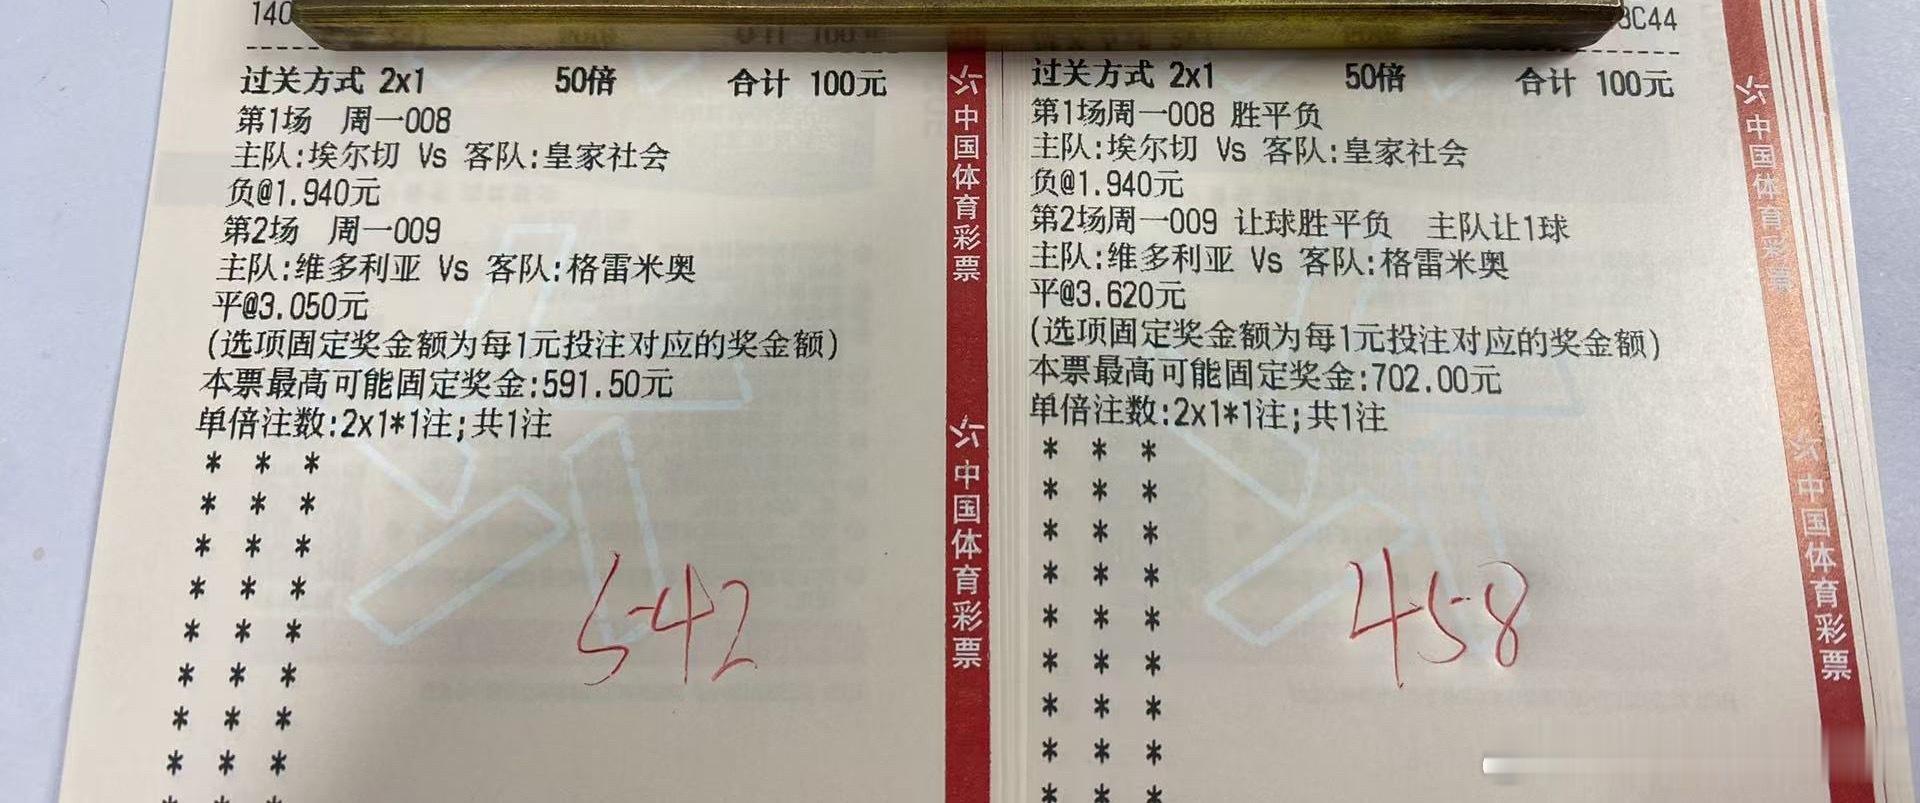 140
过关方式 2x1 50倍 合计 100元
第1场 周一008
主队:埃尔切 Vs 客队:皇家社会
负@1.940元
第2场 周一009
主队:维多利亚 Vs 客队:格雷米奥
平@3.050元
(选项固定奖金额为每1元投注对应的奖金额)
本票最高可能固定奖金:591.50元
单倍注数:2x1*1注;共1注
* * *
* * *
* * *
* * *
* * *
* * *
* * *
* * *
542
中国体育彩票
中国体育彩票
3C44
过关方式 2x1 50倍 合计 100元
第1场周一008 胜平负
主队:埃尔切 Vs 客队:皇家社会
负@1.940元
第2场周一009 让球胜平负 主队让1球
主队:维多利亚 Vs 客队:格雷米奥
平@3.620元
(选项固定奖金额为每1元投注对应的奖金额)
本票最高可能固定奖金:702.00元
单倍注数:2x1*1注;共1注
* * *
* * *
* * *
* * *
* * *
* * *
* * *
* * *
* * *
458
中国体育彩票
中国体育彩票